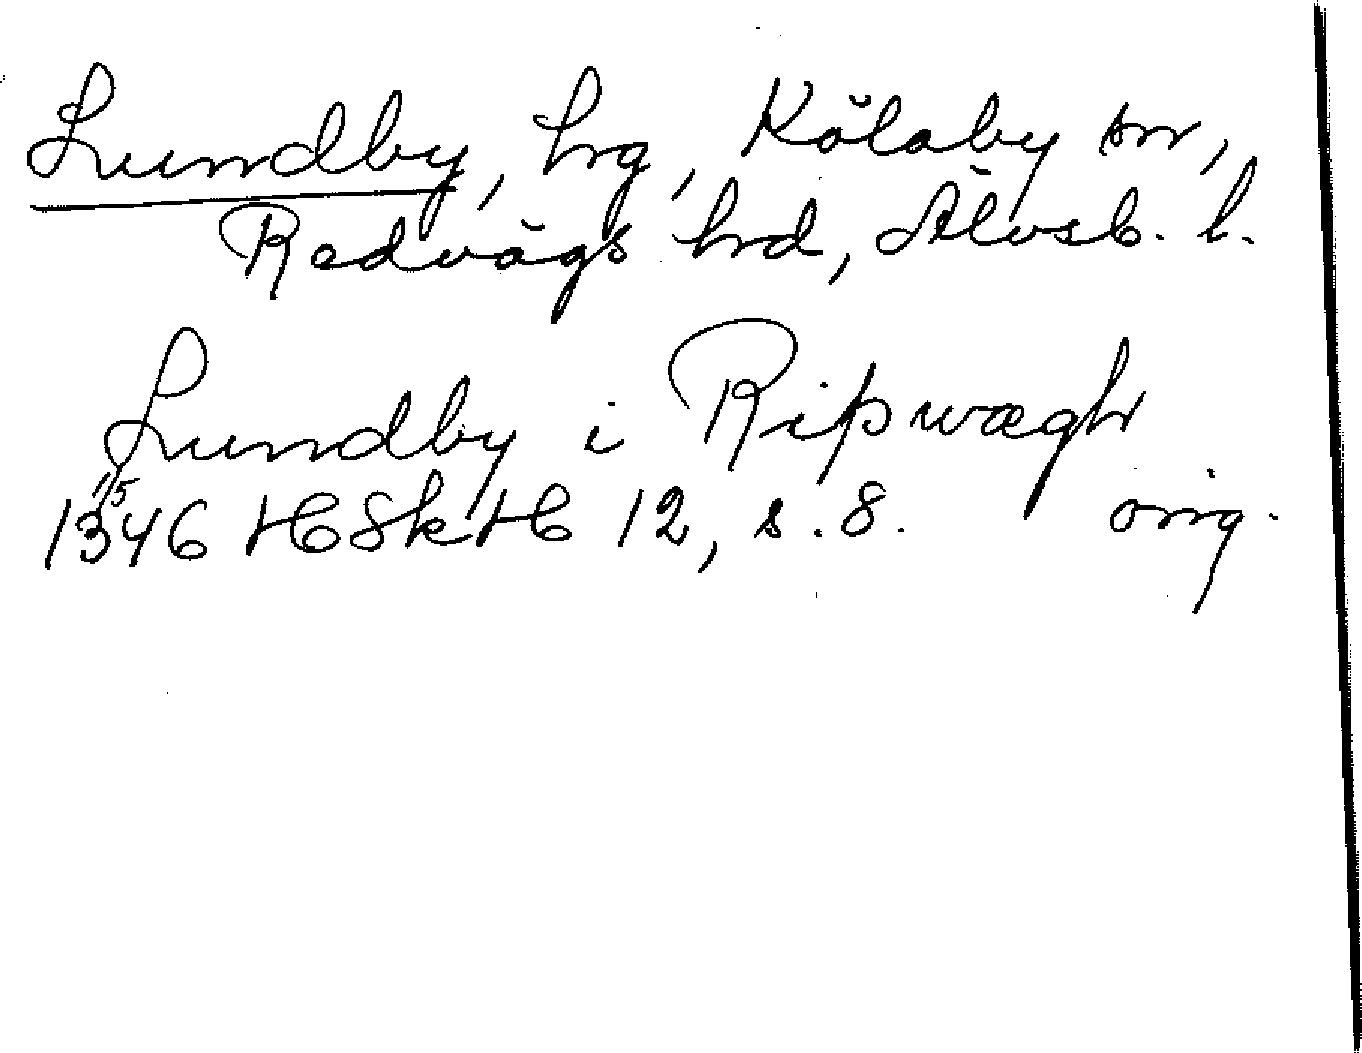 Lundby, hg, Kölaby sn,
Redvägs hd, Älvsb. l.
Lundby i Riþwægh
1346 15/1 HSkH 12, s. 8. orig.